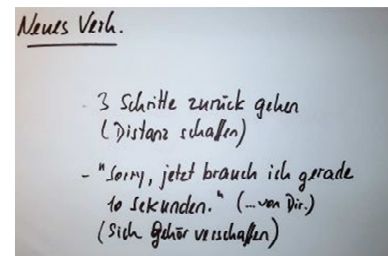 Neues Verh.
- 3 Schritte zurück gehen
(Distanz schaffen)
- "Sorry, jetzt brauch ich gerade
10 Sekunden." (...von Dir.)
(Sich Gehör verschaffen)